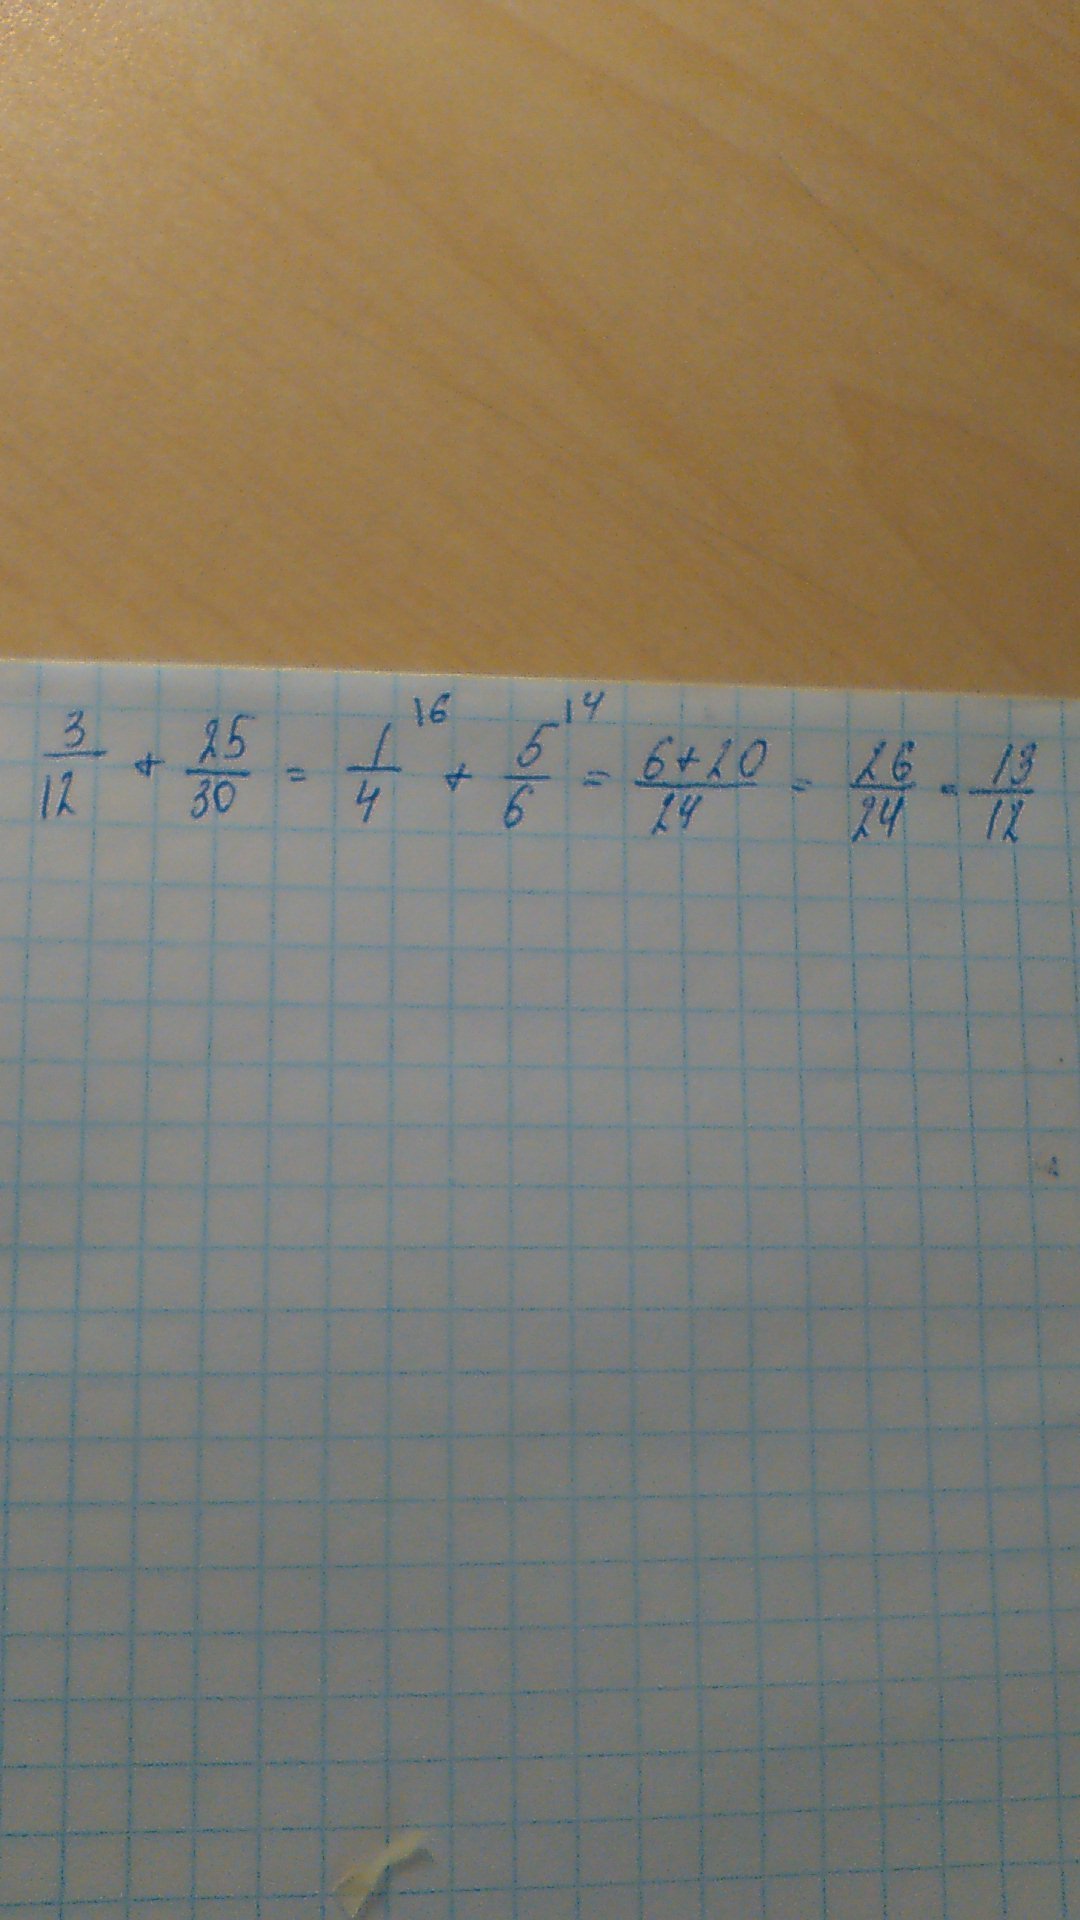 3/12 + 25/30 = 1/4 |6 + 5/6 |4 = 6+20/24 = 26/24 = 13/12